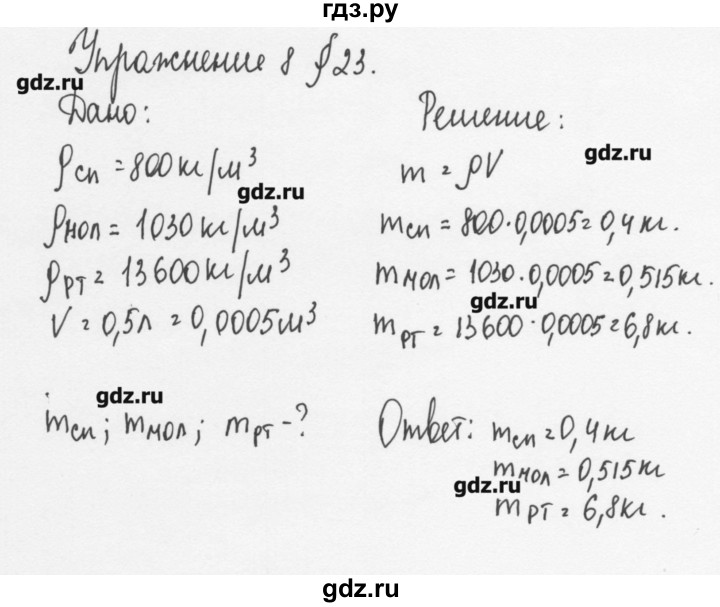 гдз.ру
Упражнение 8 § 23.
gdz.ru
Дано:
ρсп = 800 кг/м³
gdz.ru
ρмол = 1030 кг/м³
ρрт = 13600 кг/м³
V = 0,5л = 0,0005м³
gdz.ru
mсп; mмол; mрт - ?
Решение:
gdz.ru
m = ρV
mсп = 800·0,0005 = 0,4 кг.
mмол = 1030·0,0005 = 0,515 кг.
gdz.ru
mрт = 13600·0,0005 = 6,8 кг.
Ответ: mсп = 0,4 кг
mмол = 0,515 кг
gdz.ru
mрт = 6,8 кг.
gdz.ru